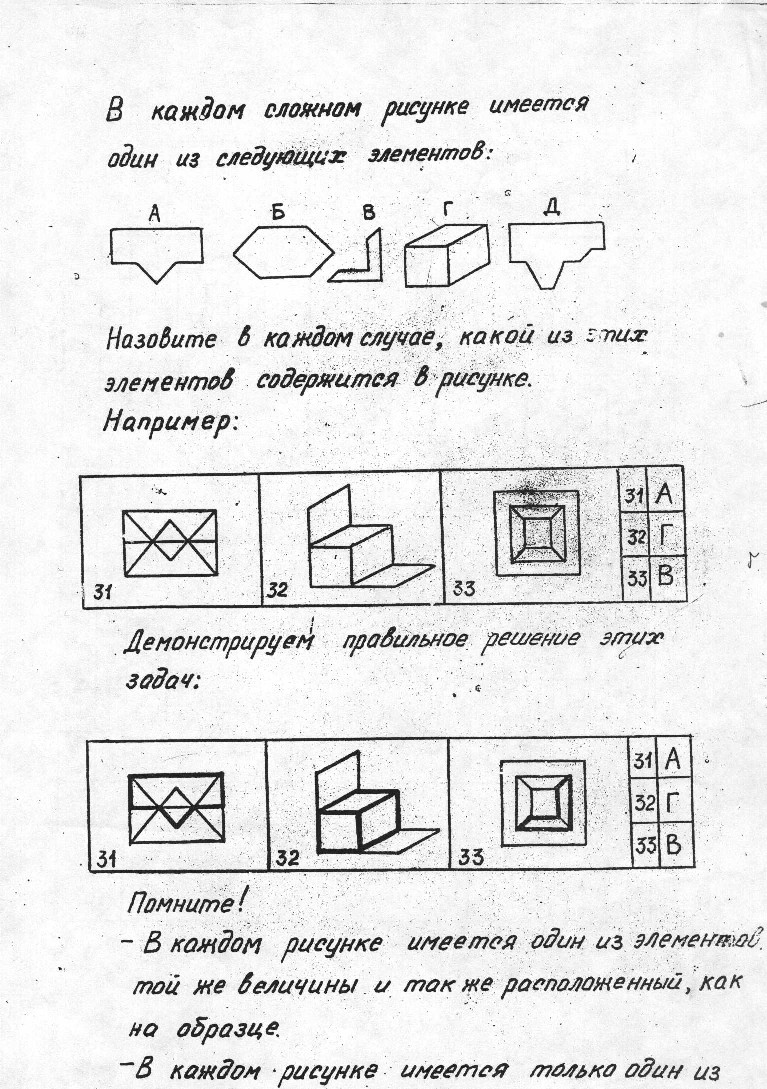 В каждом сложном рисунке имеется
один из следующих элементов:
А Б В Г Д
Назовите в каждом случае, какой из этих
элементов содержится в рисунке.
Например:
31 32 33
31 А
32 Г
33 В
Демонстрируем правильное решение этих
задач:
31 32 33
31 А
32 Г
33 В
Помните!
- В каждом рисунке имеется один из элементов
той же величины и так же расположенный, как
на образце.
- В каждом рисунке имеется только один из